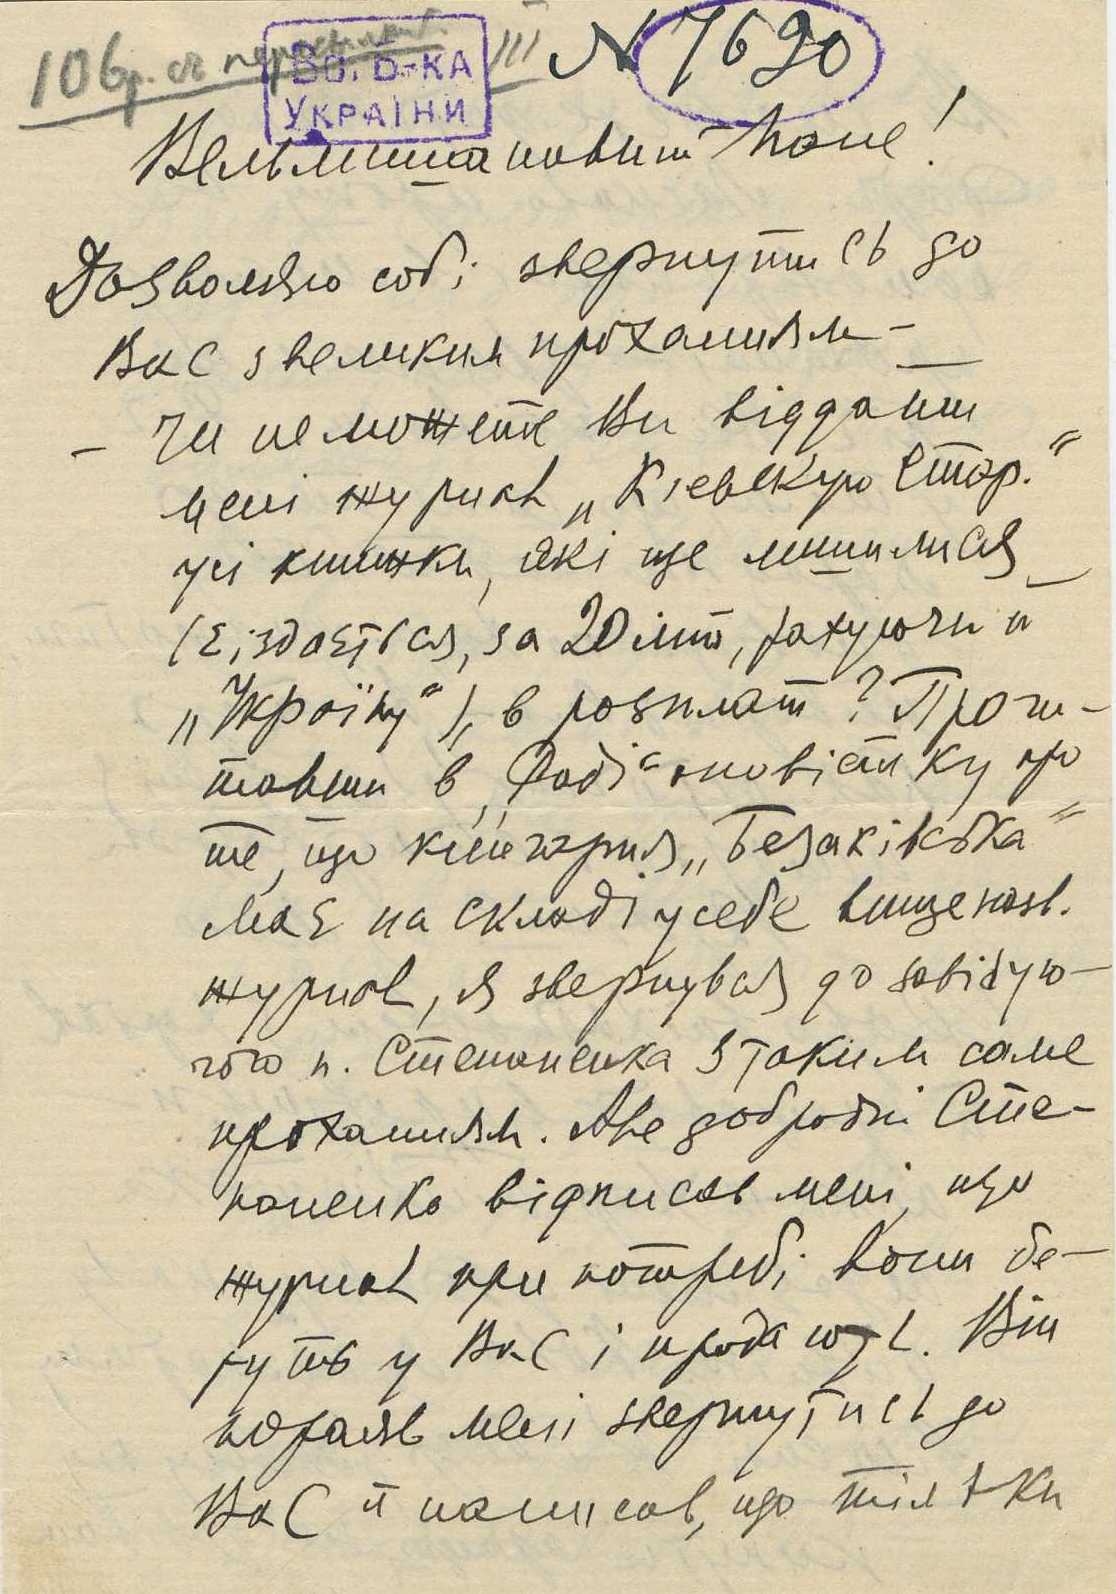 106
III
N 7690
Вс. Б-ка
України
Вельмишановний Пане!
Дозволяю собі звернутись до
Вас з великим проханням –
– чи не можете Ви віддати
мені журнал „Кіевскую Стар."
усі книжки, які ще лишилися
(є, здається, за 20 літ, рахуючи й
„Україну"), в розплат? Прочи-
тавши в „Раді" оповістку про
те, що книгарня „Безаківська"
має на складі у себе вищеназв.
журнал, я звернувся до завідую-
чого п. Степаненка з таким саме
проханням. Але добродій Сте-
паненко відписав мені, що
журнал при потребі вони бе-
руть у Вас і продають. Він
нараяв мені звернутись до
Вас й написав, що тільки